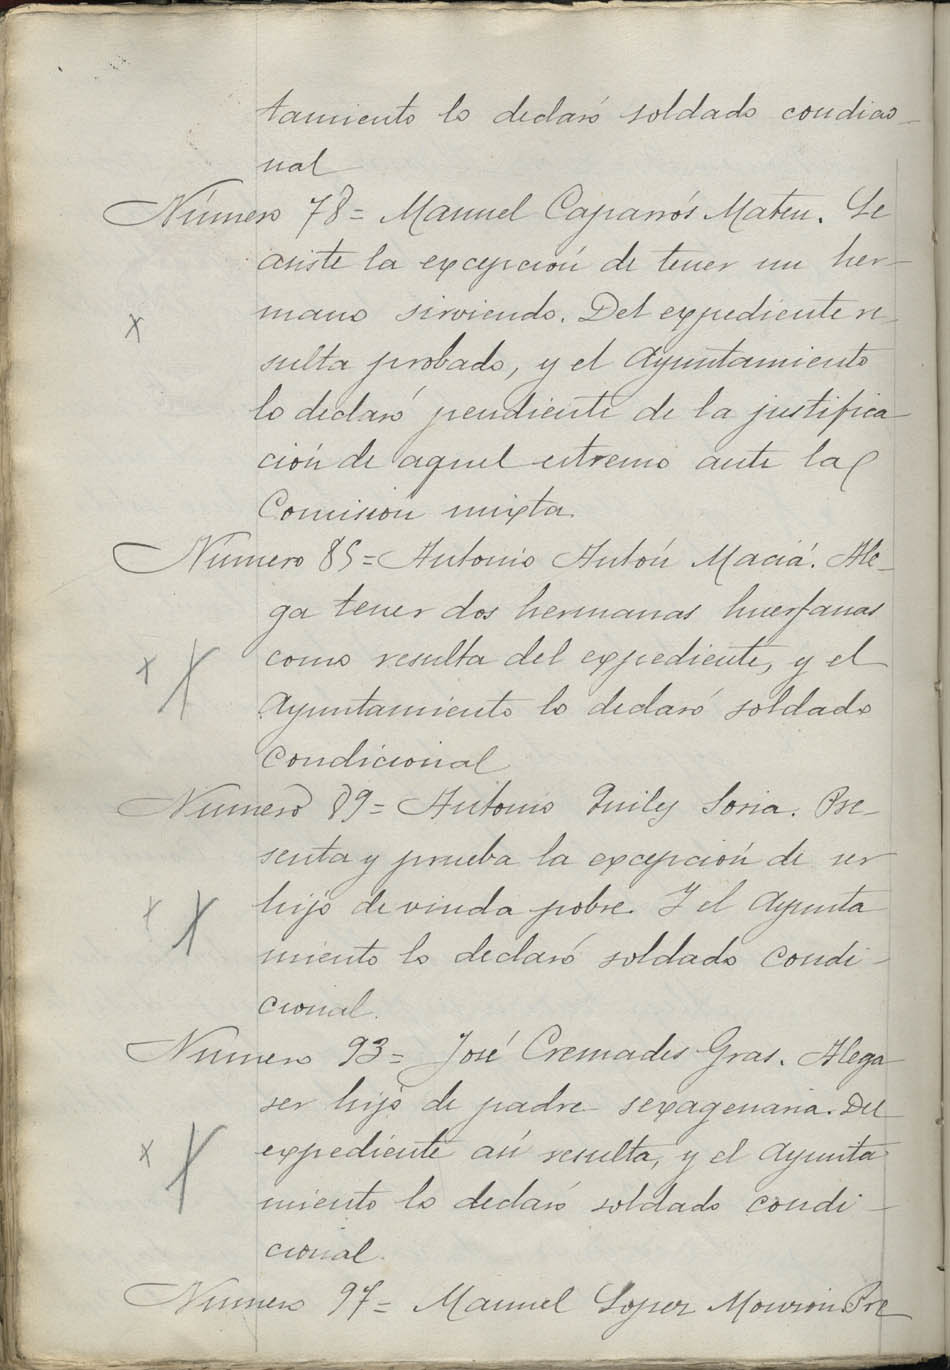 tamiento lo declaró soldado condicio-
nal
Número 78= Manuel Caparrós Mateu. Le
asiste la excepción de tener un her-
mano sirviendo. Del expediente re-
sulta probado, y el Ayuntamiento
lo declaró pendiente de la justifica
ción de aquel extremo ante la
Comision mixta.
Número 85= Antonio Antón Maciá. Ale-
ga tener dos hermanas huerfanas
como resulta del expediente, y el
Ayuntamiento lo declaró soldado
condicional
Numero 89= Antonio Quiles Soria. Pre-
senta y prueba la excepción de ser
hijo de viuda pobre. Y el Ayunta
miento lo declaró soldado condi-
cional.
Numero 93= José Cremades Gras. Alega
ser hijo de padre sexagenaria. Del
expediente así resulta, y el Ayunta
miento lo declaró soldado condi-
cional.
Numero 97= Manuel Lopez Pre